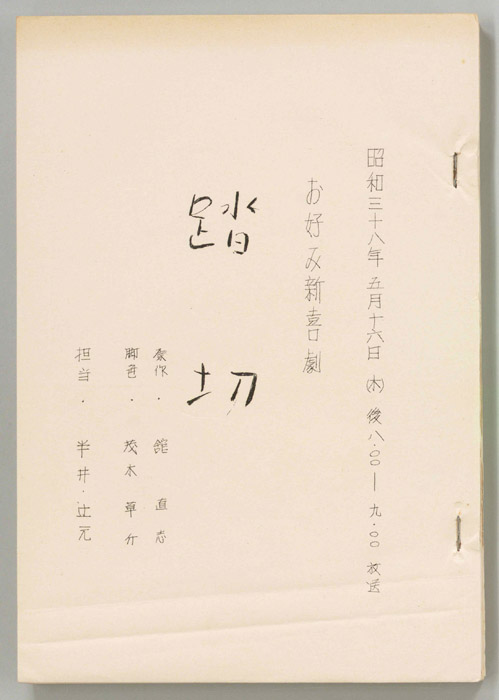 昭和三十八年五月十六日(木)後八.〇〇―九.〇〇放送
お好み新喜劇
踏切
原作・舘直志
脚色・茂木草介
担当・半井・辻元